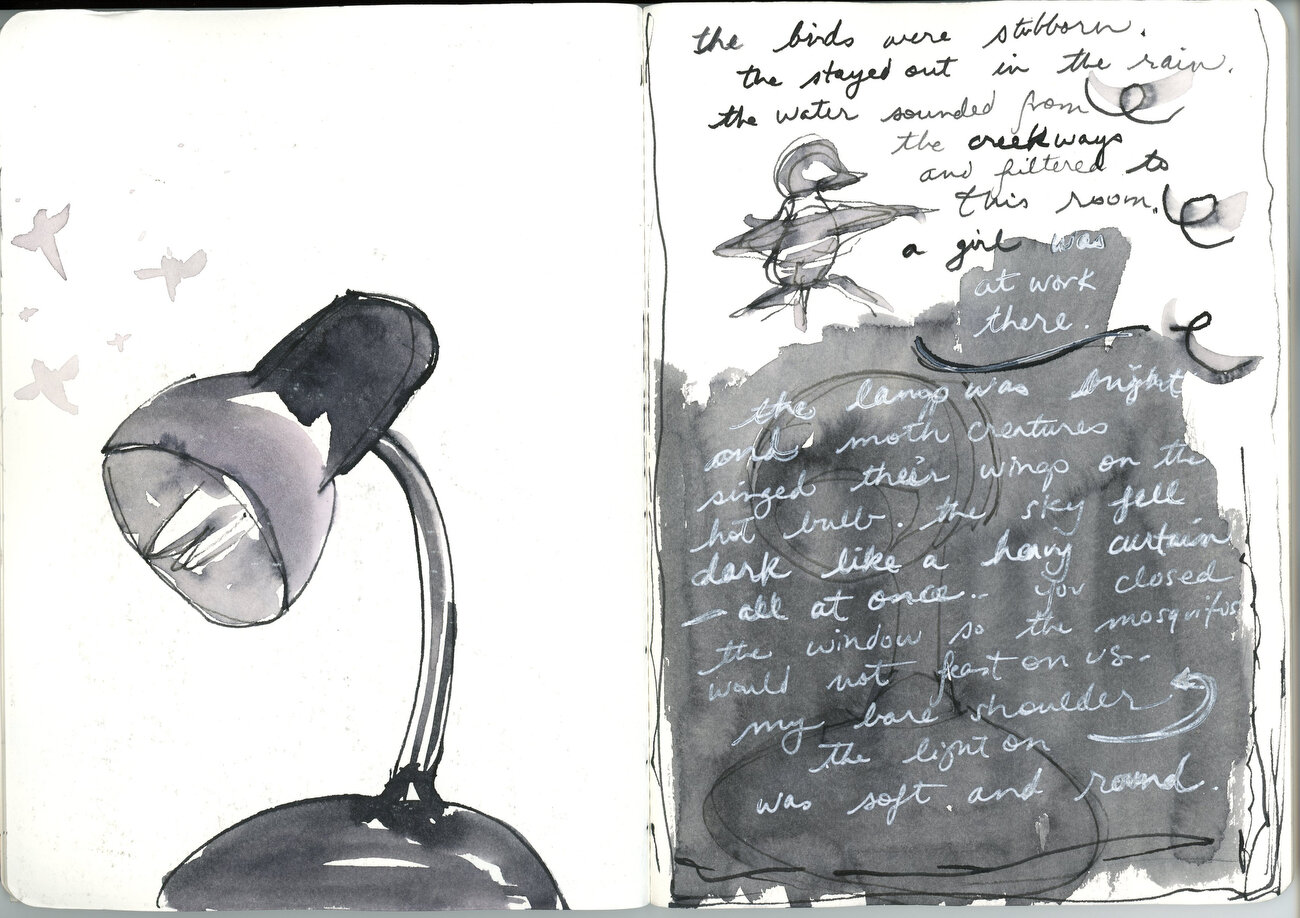 the birds were stubborn.
the stayed out in the rain.
the water sounded from
the creekways
and filtered to
this room.
a girl was
at work
there.
the lamp was bright
and moth creatures
singed their wings on the
hot bulb. the sky fell
dark like a heavy curtain
– all at once. you closed
the window so the mosquitos
would not feast on us.
my bare shoulder
the light on
was soft. and round.